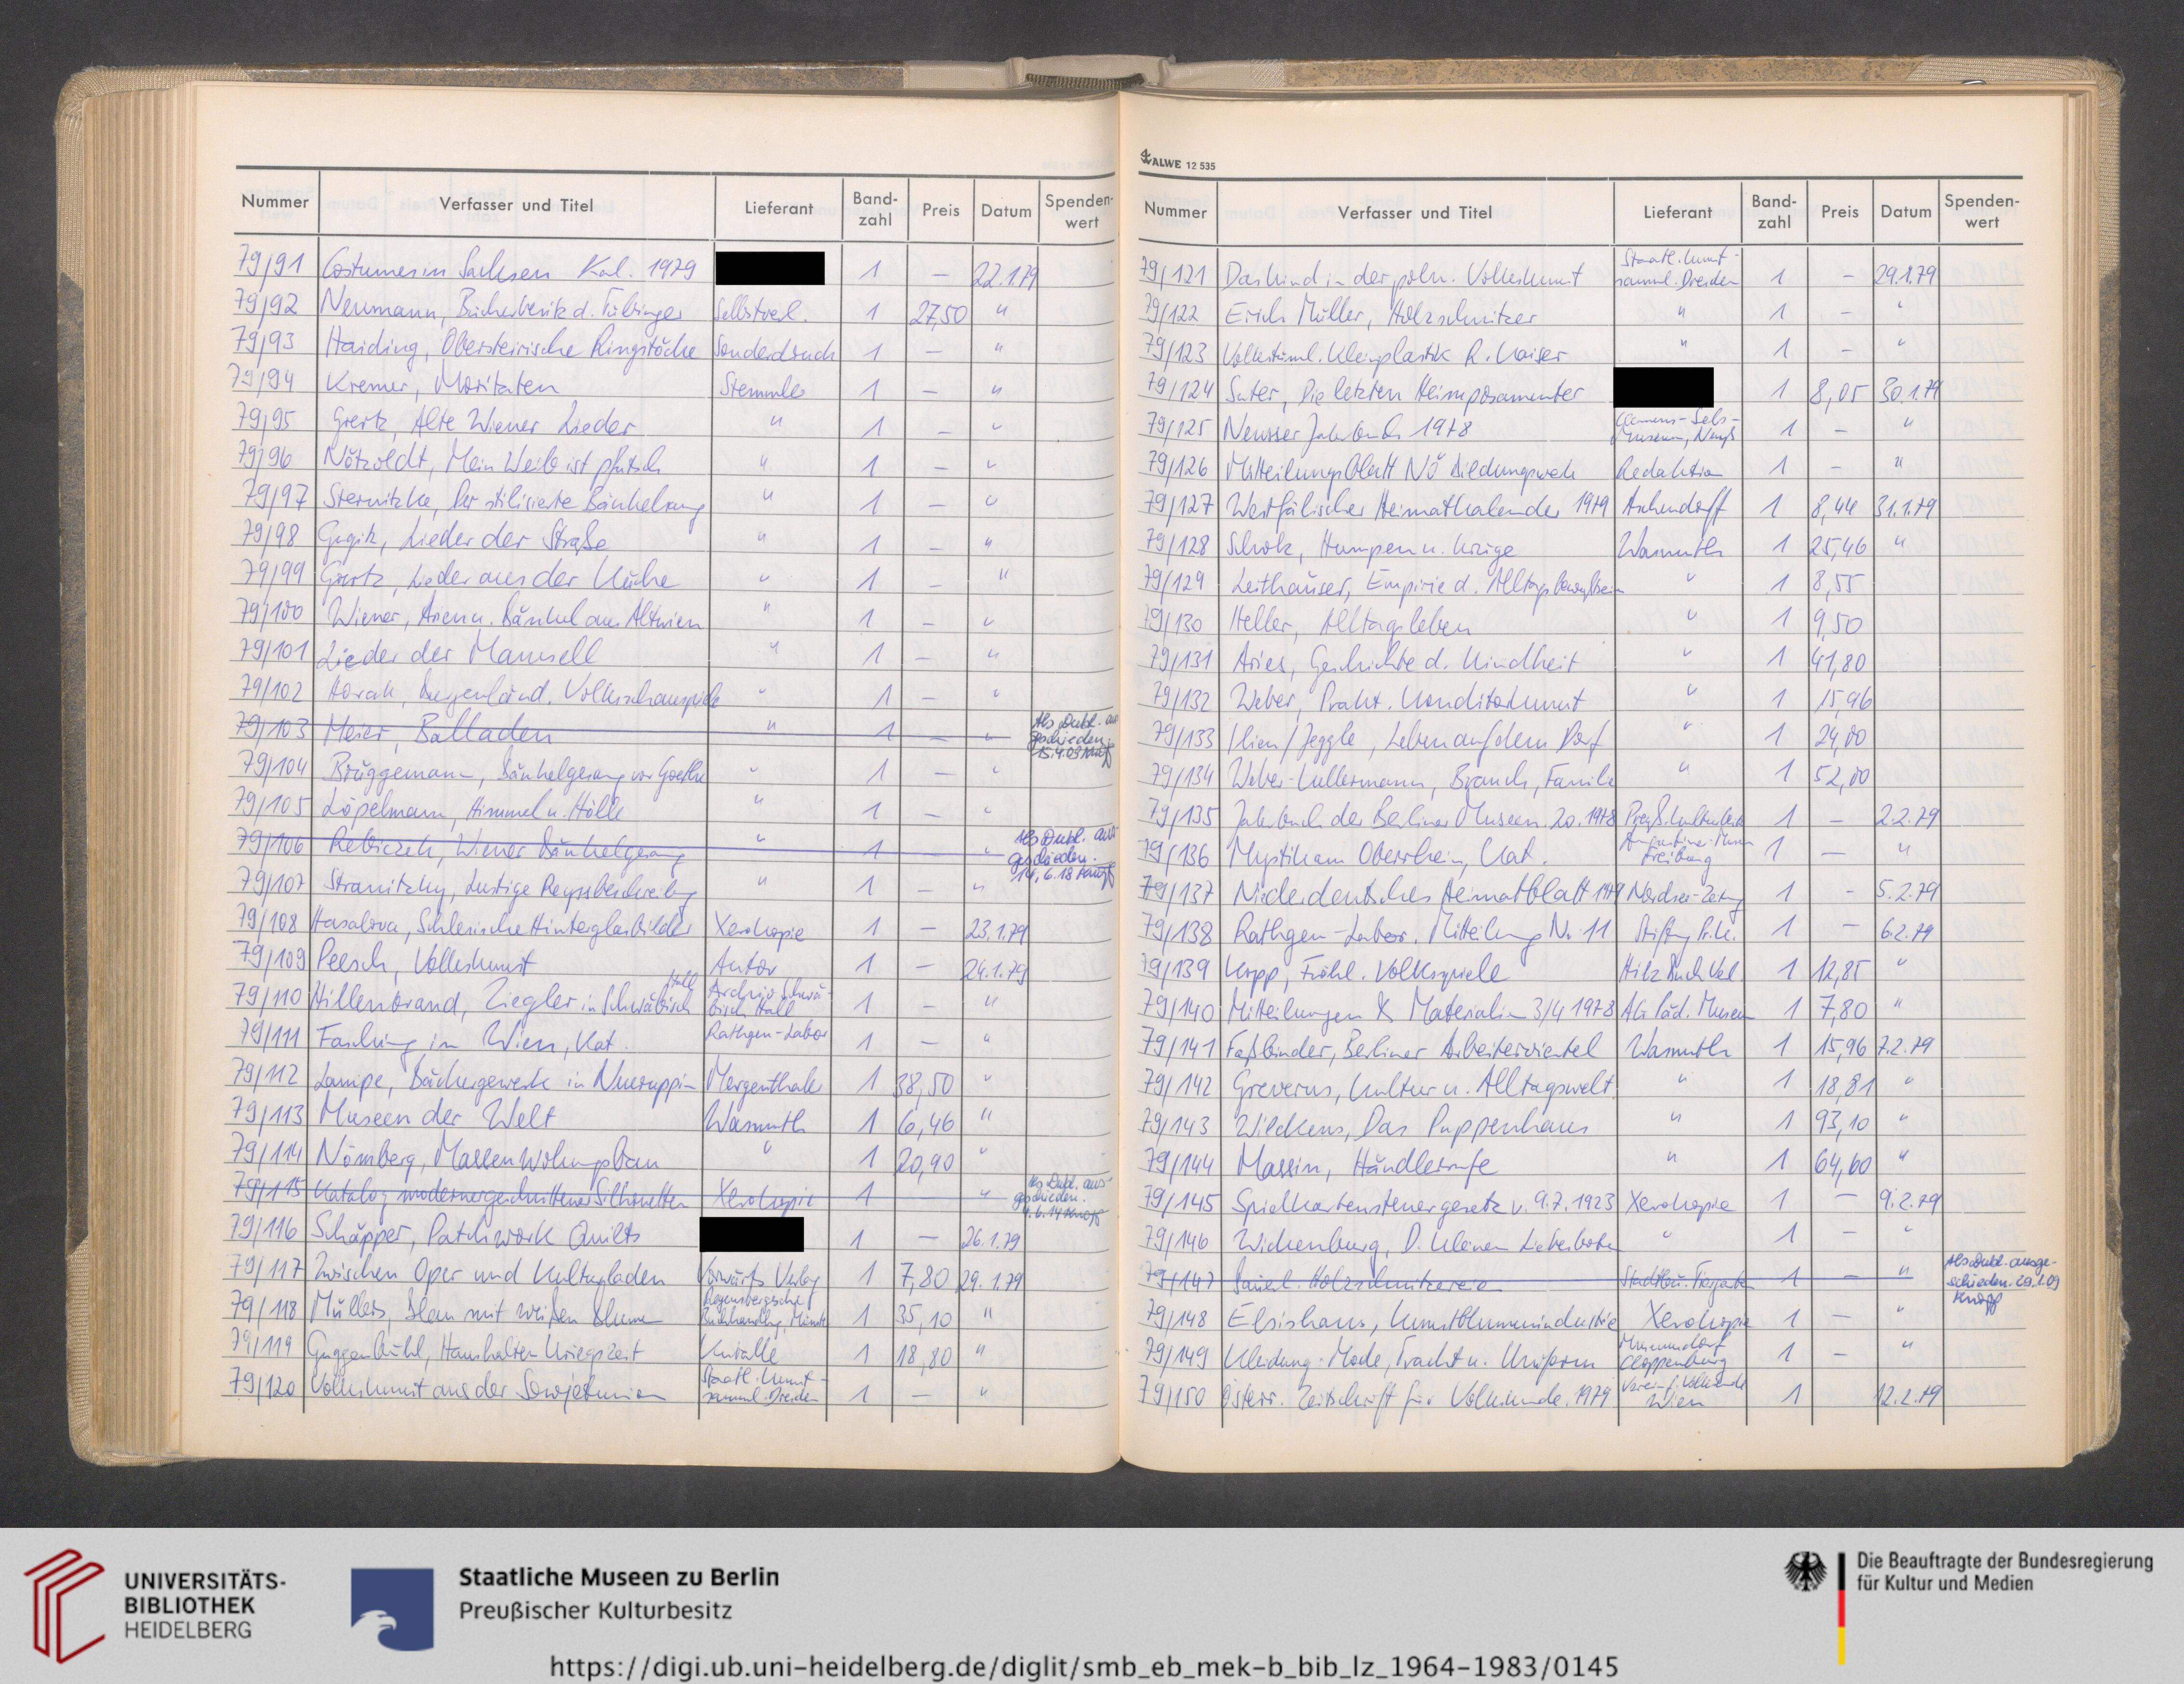 Nummer Verfasser und Titel Lieferant Band-zahl Preis Datum Spenden-wert
79/91 Costumes in Sachsen Kal. 1979 1 — 22.1.79
79/92 Neumann, Bücherbesitz d. Tübinger Selbstverl. 1 27,50 "
79/93 Haiding, Obersteirische Ringstöcke Sonderdruck 1 — "
79/94 Kremer, Moritaten Stemmle 1 — "
79/95 Alte Wiener Lieder " 1 — "
79/96 Nötzoldt, Mein Weib ist pfutsch " 1 — "
79/97 Sternitzke, Der stilisierte Bänkelsang " 1 — "
79/98 Gugitz, Lieder der Straße " 1 — "
79/99 Lieder aus der Küche " 1 — "
79/100 Wiener, Arien u. Bänkel aus Altwien " 1 — "
79/101 Lieder der Mamsell " 1 — "
79/102 Horak, Burgenländ. Volksschauspiele " 1 — "
79/103 Meier, Balladen " 1 — " Als Dubl. ausgeschieden. 15.4.09 Knopf
79/104 Brüggemann, Bänkelgesang vor Goethe " 1 — "
79/105 Löpelmann, Himmel u. Hölle " 1 — "
79/106 Rebiczek, Wiener Bänkelgesang " 1 " Als Dubl. ausgeschieden. 14.6.18 Knopf
79/107 Stranitzky, Lustige Reyssbeschreibg " 1 — "
79/108 Hasalova, Schlesische Hinterglasbilder Xerokopie 1 — 23.1.79
79/109 Peesch, Volkskunst Autor 1 — 24.1.79
79/110 Hillenbrand, Ziegler in Schwäbisch Hall Archiv Schwäbisch Hall 1 — "
79/111 Fasching in Wien, Kat. Rathgen-Labor 1 — "
79/112 Lampe, Bäckergewerk in Neuruppin Mergenthaler 1 38,50 "
79/113 Museen der Welt Wasmuth 1 6,46 "
79/114 Nörnberg, Massenwohnungsbau " 1 20,90 "
79/115 Katalog moderner geschnittener Silhouetten Xerokopie 1 " Als Dubl. ausgeschieden. 4.6.14 Knopf
79/116 Schäpper, Patchwork Quilts 1 — 26.1.79
79/117 Zwischen Oper und Kulturladen Vorwärts Verlag 1 7,80 29.1.79
79/118 Müllers, Blau mit weißen Blumen Regensbergische Buchhandlg, Münster 1 35,10 "
79/119 Guggenbühl, Haushalten Kriegszeit 1 18,80 "
79/120 Volkskunst aus der Sowjetunion Staatl. Kunstsamml. Dresden 1 — "
ALWE 12 535
Nummer Verfasser und Titel Lieferant Band-zahl Preis Datum Spenden-wert
79/121 Das Kind in der poln. Volkskunst Staatl. Kunstsamml. Dresden 1 — 29.1.79
79/122 Erich Müller, Holzschnitzer " 1 — "
79/123 Volkstüml. Kleinplastik R. Kaiser " 1 — "
79/124 Suter, Die letzten Heimposamenter 1 8,05 30.1.79
79/125 Neusser Jahrbuch 1978 Clemens-Sels-Museum, Neuß 1 — "
79/126 Mitteilungsblatt NÖ Bildungswerk Redaktion 1 — "
79/127 Westfälischer Heimatkalender 1979 Aschendorff 1 8,44 31.1.79
79/128 Scholz, Humpen u. Krüge Wasmuth 1 25,46 "
79/129 Leithäuser, Empirie d. Alltagsbewußtseins " 1 8,55
79/130 Heller, Alltagsleben " 1 9,50
79/131 Aries, Geschichte d. Kindheit " 1 41,80
79/132 Weber, Prakt. Konditorkunst " 1 15,96
79/133 Ilien/Jeggle, Leben auf dem Dorf " 1 24,00
79/134 Weber-Kellermann, Brauch, Familie " 1 52,00
79/135 Jahrbuch der Berliner Museen. 20.1978 Preuß. Kulturbesitz 1 — 2.2.79
79/136 Mystik am Oberrhein, Kat. Augustiner-Museum Freiburg 1 — "
79/137 Niederdeutsches Heimatblatt 1979 Nordsee-Zeitung 1 — 5.2.79
79/138 Rathgen-Labor. Mitteilung Nr. 11 Stiftg Pr. K. 1 — 6.2.79
79/139 Kopp, Fröhl. Volksspiele 1 12,85 "
79/140 Mitteilungen & Materialien 3/4 1978 AG Päd. Museum 1 7,80 "
79/141 Faßbinder, Berliner Arbeiterviertel Wasmuth 1 15,96 7.2.79
79/142 Greverus, Kultur u. Alltagswelt " 1 18,81 "
79/143 Wilckens, Das Puppenhaus " 1 93,10 "
79/144 Massin, Händlerrufe " 1 64,60 "
79/145 Spielkartensteuergesetz v. 9.7.1923 Xerokopie 1 — 9.2.79
79/146 Wickenburg, D. kleinen Liebesboten " 1 — "
79/147 Sauerl. Holzschnitzerei Stadtbü. Tiergarten 1 — " Als Dubl. ausgeschieden. 20.1.09 Knopf
79/148 Elsishans, Kunstblumenindustrie Xerokopie 1 — "
79/149 Kleidung. Mode, Tracht u. Uniform Museumsdorf Cloppenburg 1 — "
79/150 Österr. Zeitschrift für Volkskunde. 1979 Verein f. Volkskunde Wien 1 12.2.79
UNIVERSITÄTS-
BIBLIOTHEK
HEIDELBERG
Staatliche Museen zu Berlin
Preußischer Kulturbesitz
Die Beauftragte der Bundesregierung
für Kultur und Medien
https://digi.ub.uni-heidelberg.de/diglit/smb_eb_mek-b_bib_lz_1964-1983/0145